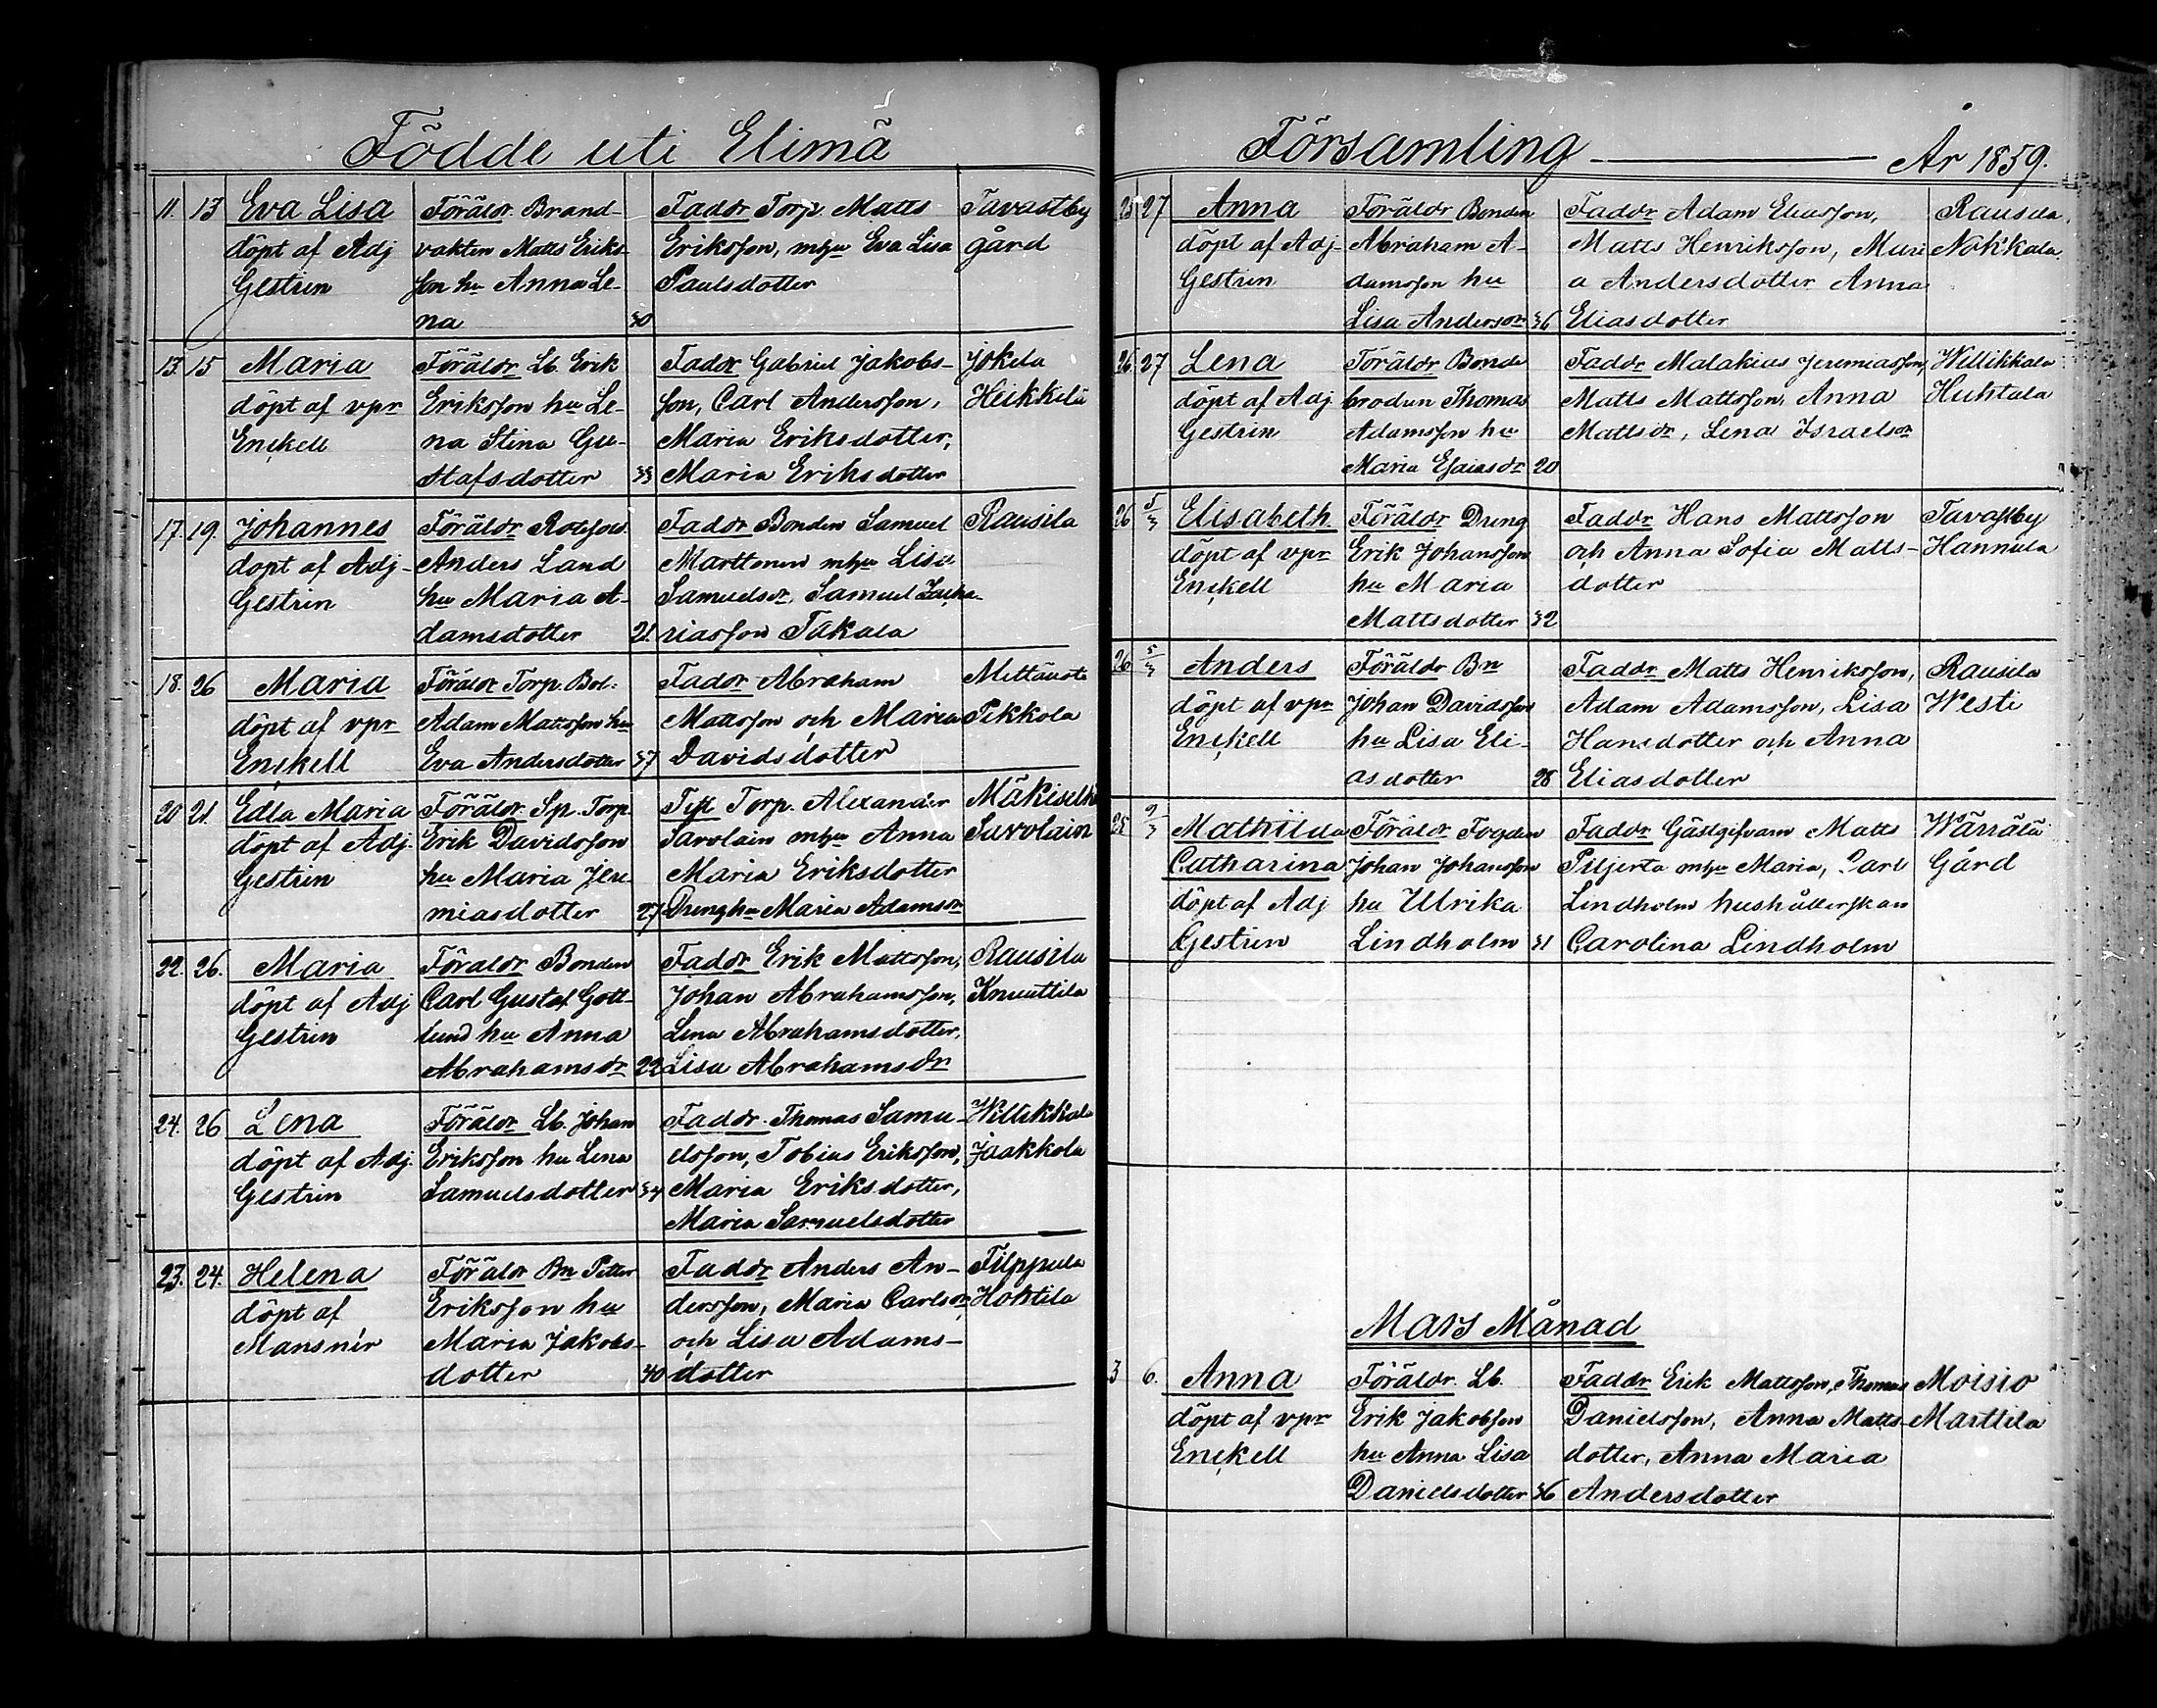 Födde uti Elimä
11. 13 Eva Lisa Föräldr. Brand- Faddr Torp. Matts Tavastby
döpt af Adj vakten Matts Eriks- Eriksson, m hu Eva Lisa gård
Gestrin son hu Anna Le- Paulsdotter
na 30
13. 15 Maria Föräldr Lb. Erik Faddr Gabriel Jakobs- Jokela
döpt af vpr Eriksson hu Le- son, Carl Andersson, Heikkilä
Enckell na Stina Gu- Maria Eriksdotter,
stafsdotter 33 Maria Eriksdotter
17. 19. Johannes Föräldr Rotesold. Faddr Bonden Samuel Rausila
döpt af Adj- Anders Land Marttonen m hu Lisa
Gestrin hu Maria A- Samuelsdr, Samuel Zacha-
damsdotter 21. riasson Takala
18. 26 Maria Föräldr Torp. Bol. Faddr Abraham Mettäuste
döpt af vpr Adam Mattsson hu Mattsson och Maria Pikkola
Enckell Eva Andersdotter 37 Davidsdotter
20 21. Edla Maria Föräldr. Sp. Torp. Test Torp. Alexander Mäkiselkä
döpt af Adj. Erik Davidsson Savolain m hu Anna Savolain
Gestrin hu Maria Jere- Maria Eriksdotter
miasdotter 27 Dreng hu Maria Adamsdr
22. 26. Maria Föräldr Bonden Faddr Erik Mattsson, Rausila
döpt af Adj Carl Gustaf Gott- Johan Abrahamsson, Knuuttila
Gestrin lund hu Anna Lena Abrahamsdotter,
Abrahamsdr 22 Lisa Abrahamsdr
24. 26 Lena Föräldr Lb. Johan Faddr. Thomas Samu- Willikkala
döpt af Adj. Eriksson hu Lena elsson, Tobias Eriksson, Jaakkola
Gestrin Samuelsdotter 34 Maria Eriksdotter,
Maria Samuelsdotter
23. 24. Helena Föräldr Bn Petter Faddr Anders An- Filppula
döpt af Eriksson hu dersson, Maria Carlsdr, Hohtila
Mansnér Maria Jakobs- och Lisa Adams-
dotter 40 dotter
Församling År 1859.
25 27 Anna Föräldr Bonden Faddr Adam Eliasson, Rausila,
döpt af Adj- Abraham A- Matts Henriksson, Mari Nokkala
Gestrin damsson hu a Andersdotter Anna
Lisa Andersdr 36 Eliasdotter
26. 27 Lena Föräldr Bonde Faddr Malakias Jeremiasson, Willikkala
döpt af Adj brodren Thomas Matts Mattsson, Anna Huhtala
Gestrin Adamsson hu Mattsdr, Lena Israelsdr
Maria Esaiasdr 20
26 5/3 Elisabeth Föräldr Dreng Faddr Hans Mattsson Tavastby
döpt af vpr Erik Johansson och Anna Sofia Matts- Hannula
Enckell hu Maria dotter
Mattsdotter 32
26 5/3 Anders Föräldr Bn Faddr Matts Henriksson, Rausila
döpt af vpr Johan Davidsson Adam Adamsson, Lisa Westi
Enckell hu Lisa Eli- Hansdotter och Anna
asdotter 28 Eliasdotter
25 9/3 Mathilda Föräldr Fogden Faddr Gästgifvarn Matts Wärrälä
Catharina Johan Johansson Piljerta m hu Maria, Carl Gård
döpt af Adj hu Ulrika Lindholm hushållerskan
Gestrin Lindholm 31 Carolina Lindholm
Mars Månad
3 6. Anna Föräldr. Lb. Faddr Erik Mattsson, Thomas Moisio
döpt af vpr Erik Jakobsson Danielsson, Anna Matts- Marttila
Enckell hu Anna Lisa dotter, Anna Maria
Danielsdotter 36 Andersdotter